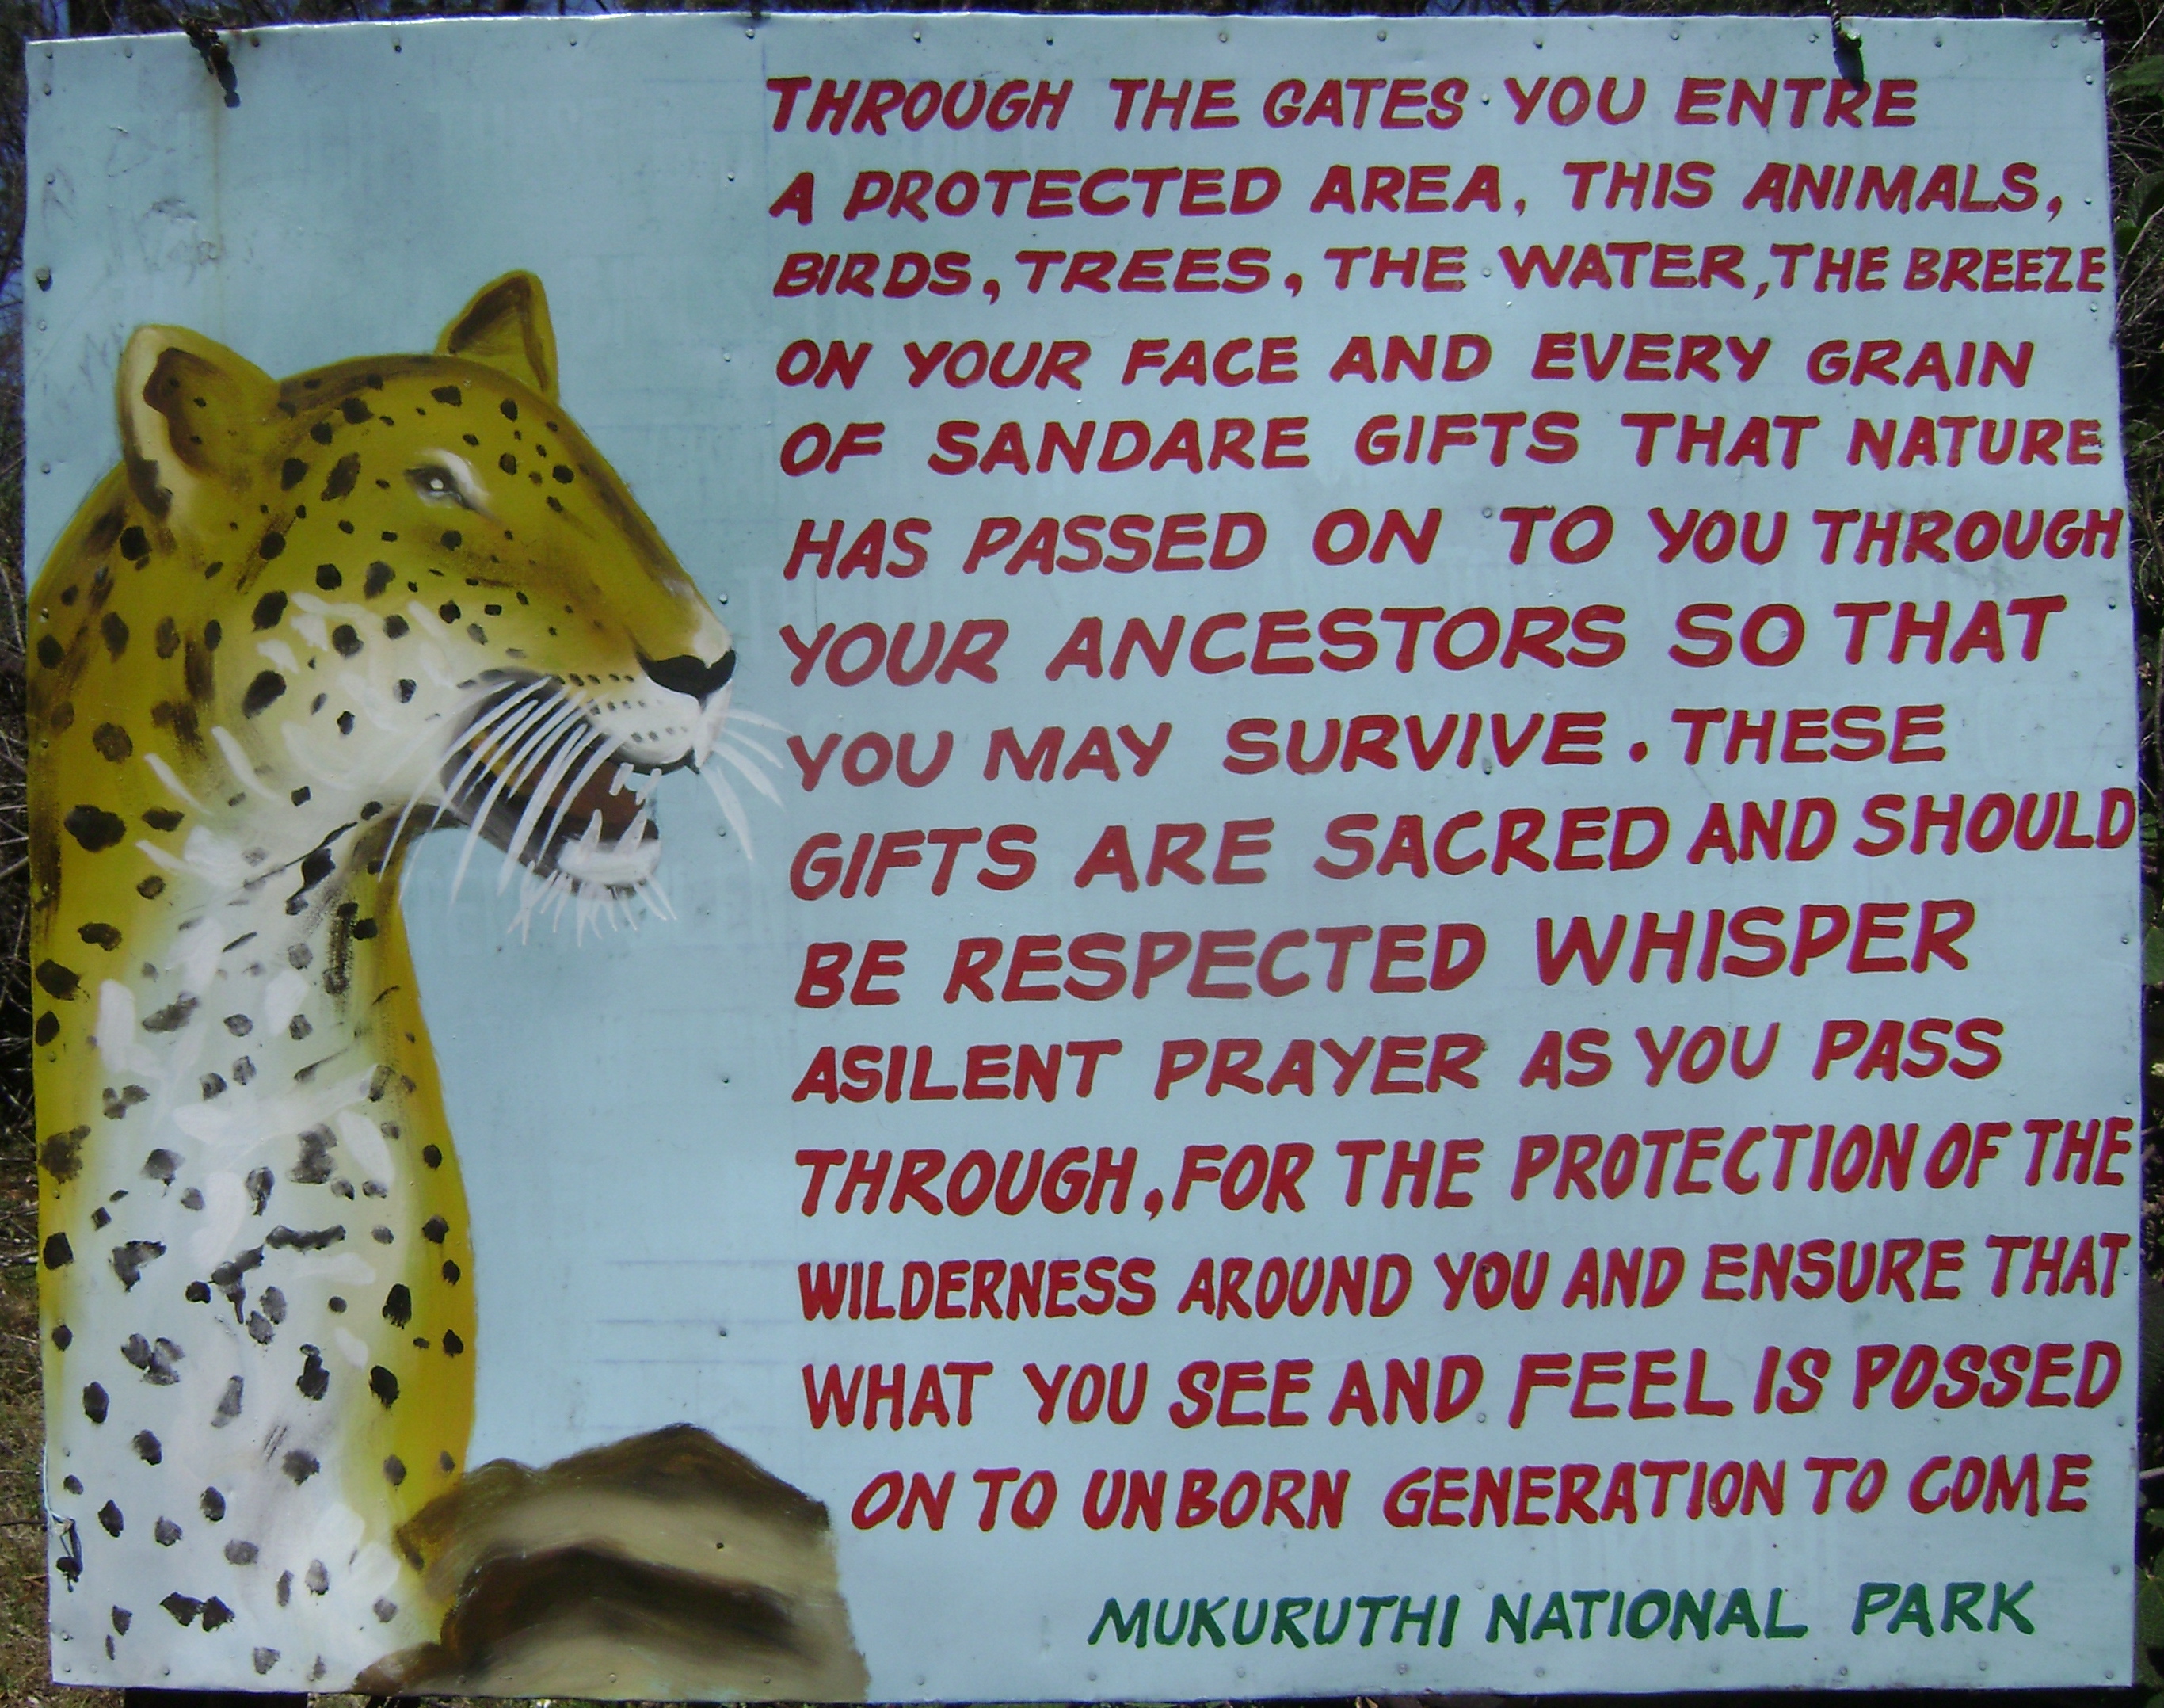 THROUGH THE GATES YOU ENTRE
A PROTECTED AREA, THIS ANIMALS,
BIRDS, TREES, THE WATER, THE BREEZE
ON YOUR FACE AND EVERY GRAIN
OF SANDARE GIFTS THAT NATURE
HAS PASSED ON TO YOU THROUGH
YOUR ANCESTORS SO THAT
YOU MAY SURVIVE. THESE
GIFTS ARE SACRED AND SHOULD
BE RESPECTED WHISPER
ASILENT PRAYER AS YOU PASS
THROUGH, FOR THE PROTECTION OF THE
WILDERNESS AROUND YOU AND ENSURE THAT
WHAT YOU SEE AND FEEL IS POSSED
ON TO UNBORN GENERATION TO COME
MUKURUTHI NATIONAL PARK